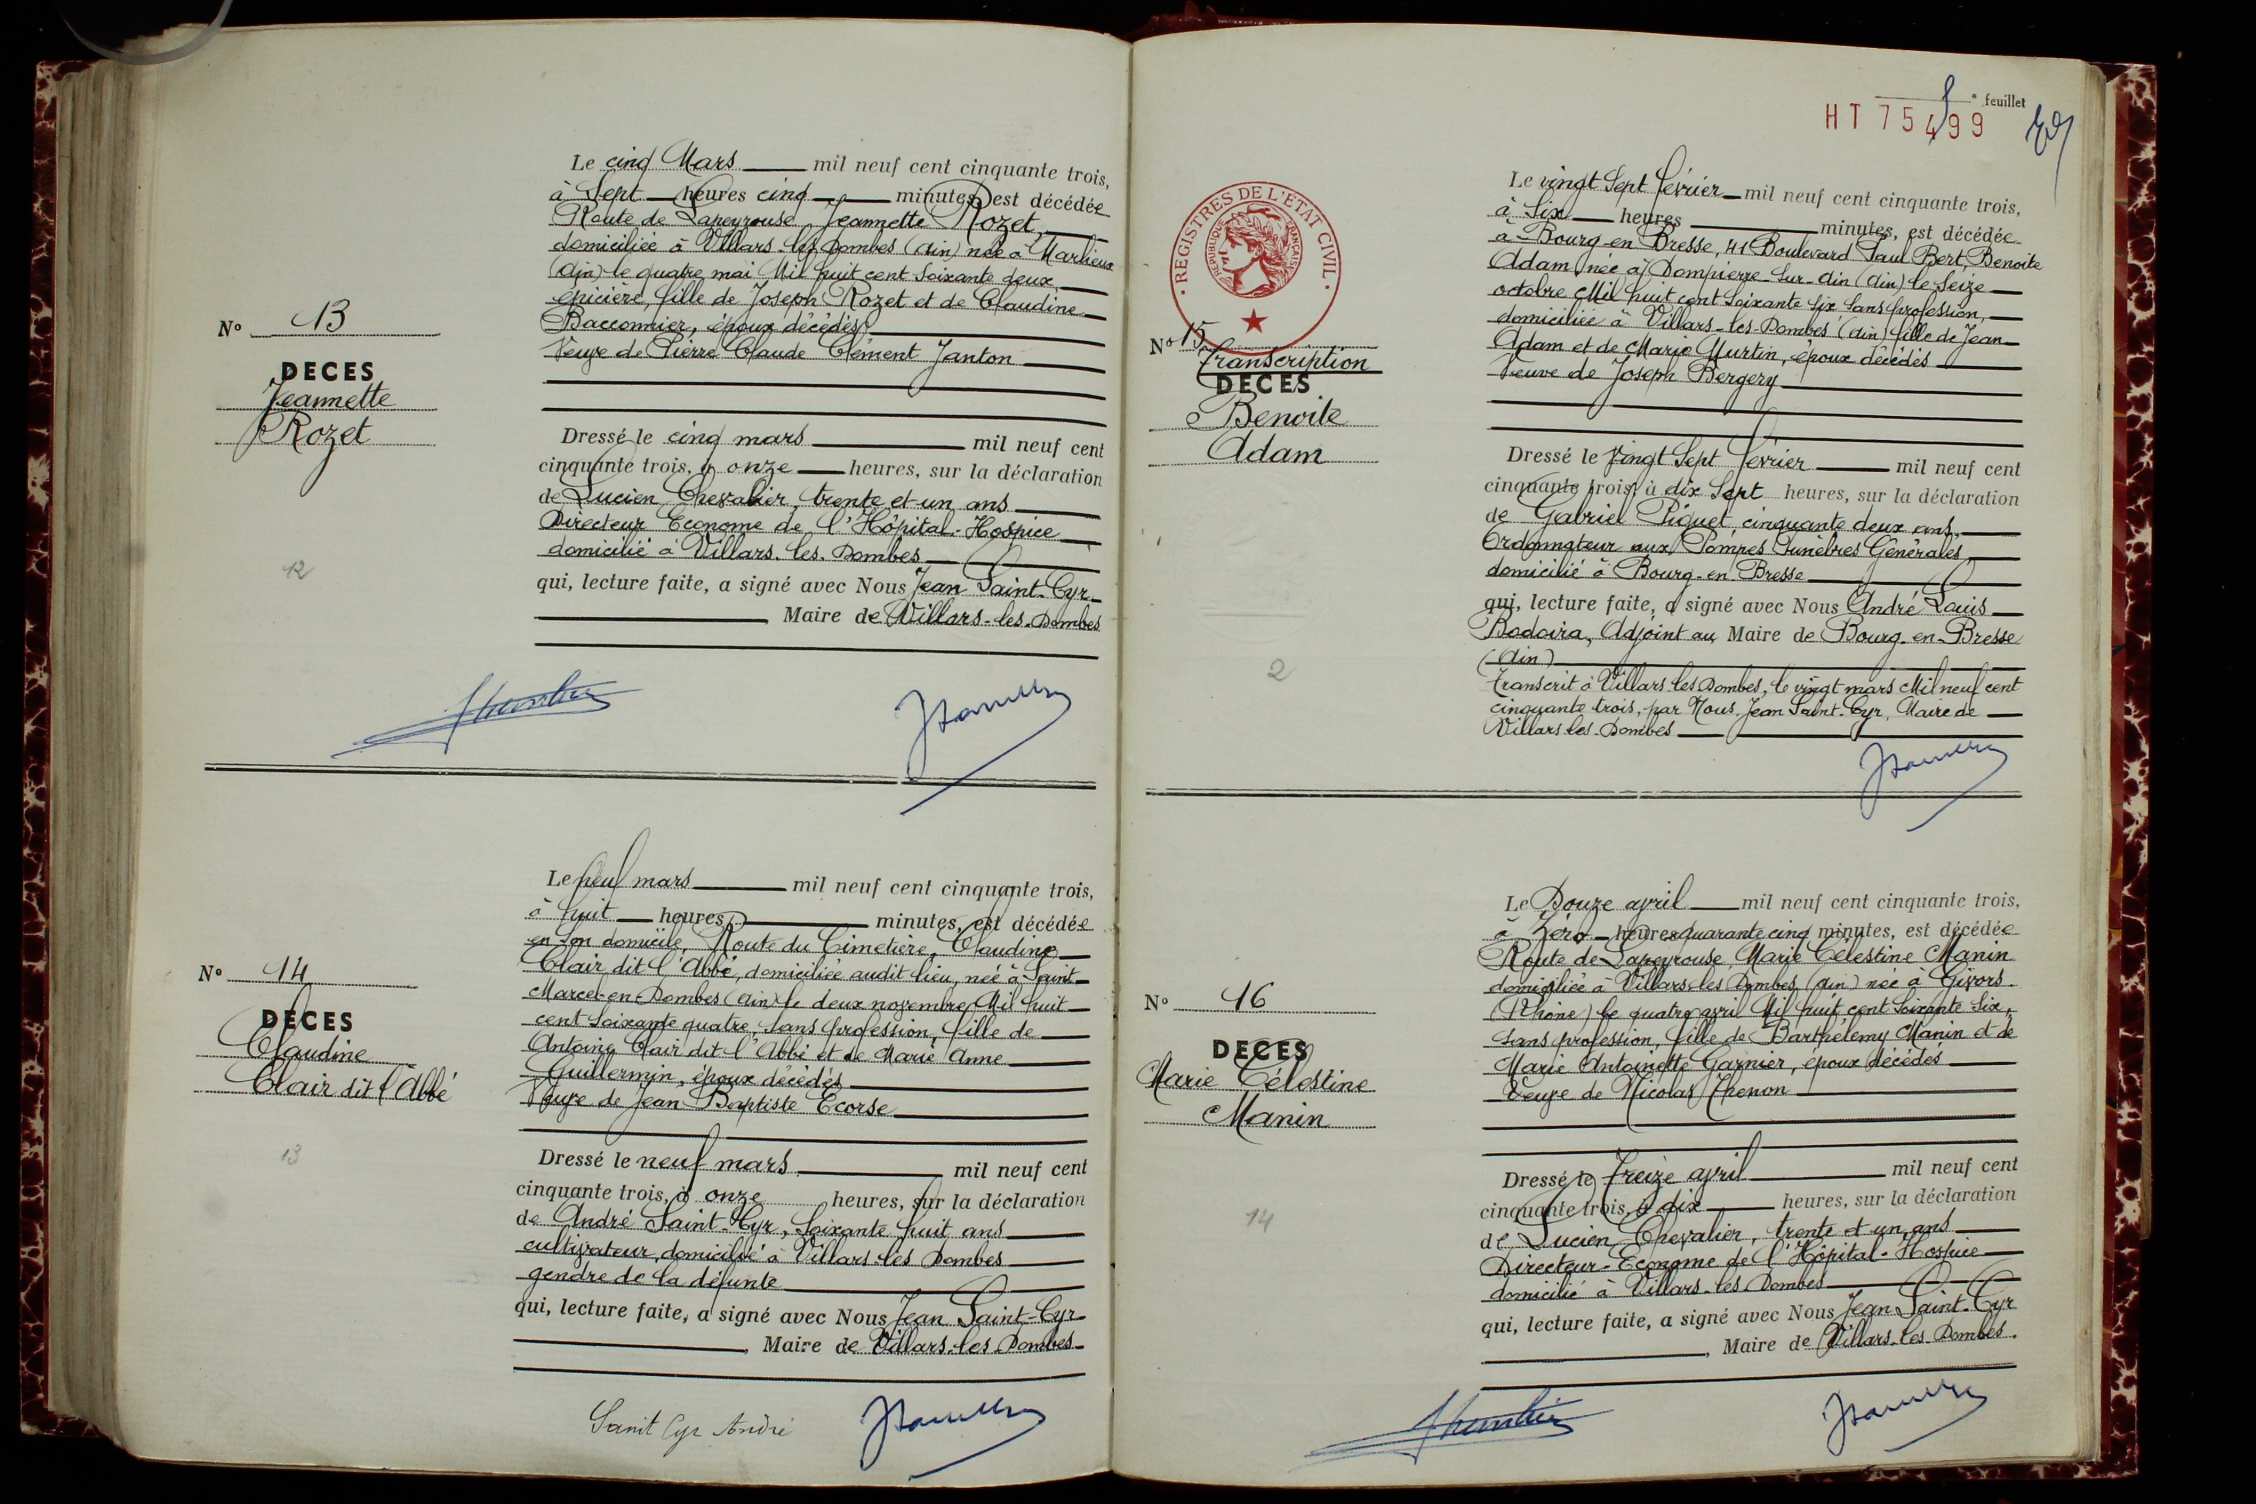 N° 13
DECES
Jeannette
Rozet
12
Le cinq Mars mil neuf cent cinquante trois,
à Sept heures cinq minutes, est décédée
Route de Lapeyrouse Jeannette Rozet,
domiciliée à Villars-les-Dombes (Ain) née à Marlieux
(Ain) le quatre mai Mil huit cent soixante deux,
épicière, fille de Joseph Rozet et de Claudine
Bacconnier, époux décédés
Veuve de Pierre Claude Clément Janton
Dressé le cinq mars mil neuf cent
cinquante trois, à onze heures, sur la déclaration
de Lucien Chevalier, trente et un ans
Directeur Econome de l'Hôpital-Hospice
domicilié à Villars-les-Dombes
qui, lecture faite, a signé avec Nous Jean Saint-Cyr
Maire de Villars-les-Dombes
N° 14
DECES
Claudine
Clair dit l'Abbé
13
Le neuf mars mil neuf cent cinquante trois,
à huit heures minutes, est décédée
en son domicile, Route du Cimetière, Claudine
Clair dit l'Abbé, domiciliée audit lieu, née à Saint
Marcel-en-Dombes (Ain) le deux novembre Mil huit
cent soixante quatre, sans profession, fille de
Antoine Clair dit l'Abbé et de Marie Anne
Guillermin, époux décédés
Veuve de Jean Baptiste Ecorse
Dressé le neuf mars mil neuf cent
cinquante trois, à onze heures, sur la déclaration
de André Saint-Cyr, soixante huit ans
cultivateur, domicilié à Villars-les-Dombes
gendre de la défunte
qui, lecture faite, a signé avec Nous Jean Saint-Cyr
Maire de Villars-les-Dombes
Saint Cyr André
e feuillet
HT 75499
REGISTRES DE L'ETAT CIVIL
REPUBLIQUE FRANÇAISE
N° 15
Transcription
DECES
Benoite
Adam
2
Le vingt Sept février mil neuf cent cinquante trois,
à Six heures minutes, est décédée
à Bourg-en-Bresse, 41 Boulevard Paul Bert, Benoite
Adam née à Dompierre-sur-Ain (Ain) le seize
octobre Mil huit cent soixante six sans profession,
domiciliée à Villars-les-Dombes (Ain) fille de Jean
Adam et de Marie Murtin, époux décédés
Veuve de Joseph Bergery
Dressé le vingt Sept février mil neuf cent
cinquante trois, à dix Sept heures, sur la déclaration
de Gabriel Piquet, cinquante deux ans,
Ordonnateur aux Pompes Funèbres Générales,
domicilié à Bourg-en-Bresse
qui, lecture faite, a signé avec Nous André Louis
Bodoira, Adjoint au Maire de Bourg-en-Bresse
(Ain)
Transcrit à Villars-les-Dombes, le vingt mars Mil neuf cent
cinquante trois, par Nous, Jean Saint-Cyr, Maire de
Villars-les-Dombes
N° 16
DECES
Marie Célestine
Manin
14
Le Douze avril mil neuf cent cinquante trois,
à Zéro heures quarante cinq minutes, est décédée
Route de Lapeyrouse, Marie Célestine Manin
domiciliée à Villars-les-Dombes, (Ain) née à Givors.
(Rhône) le quatre avril Mil huit cent soixante six,
sans profession, fille de Barthélemy Manin et de
Marie Antoinette Garnier, époux décédés
Veuve de Nicolas Thenon
Dressé le Treize avril mil neuf cent
cinquante trois, à dix heures, sur la déclaration
de Lucien Chevalier, trente et un ans
Directeur-Econome de l'Hôpital-Hospice
domicilié à Villars-les-Dombes
qui, lecture faite, a signé avec Nous Jean Saint-Cyr
Maire de Villars-les-Dombes.